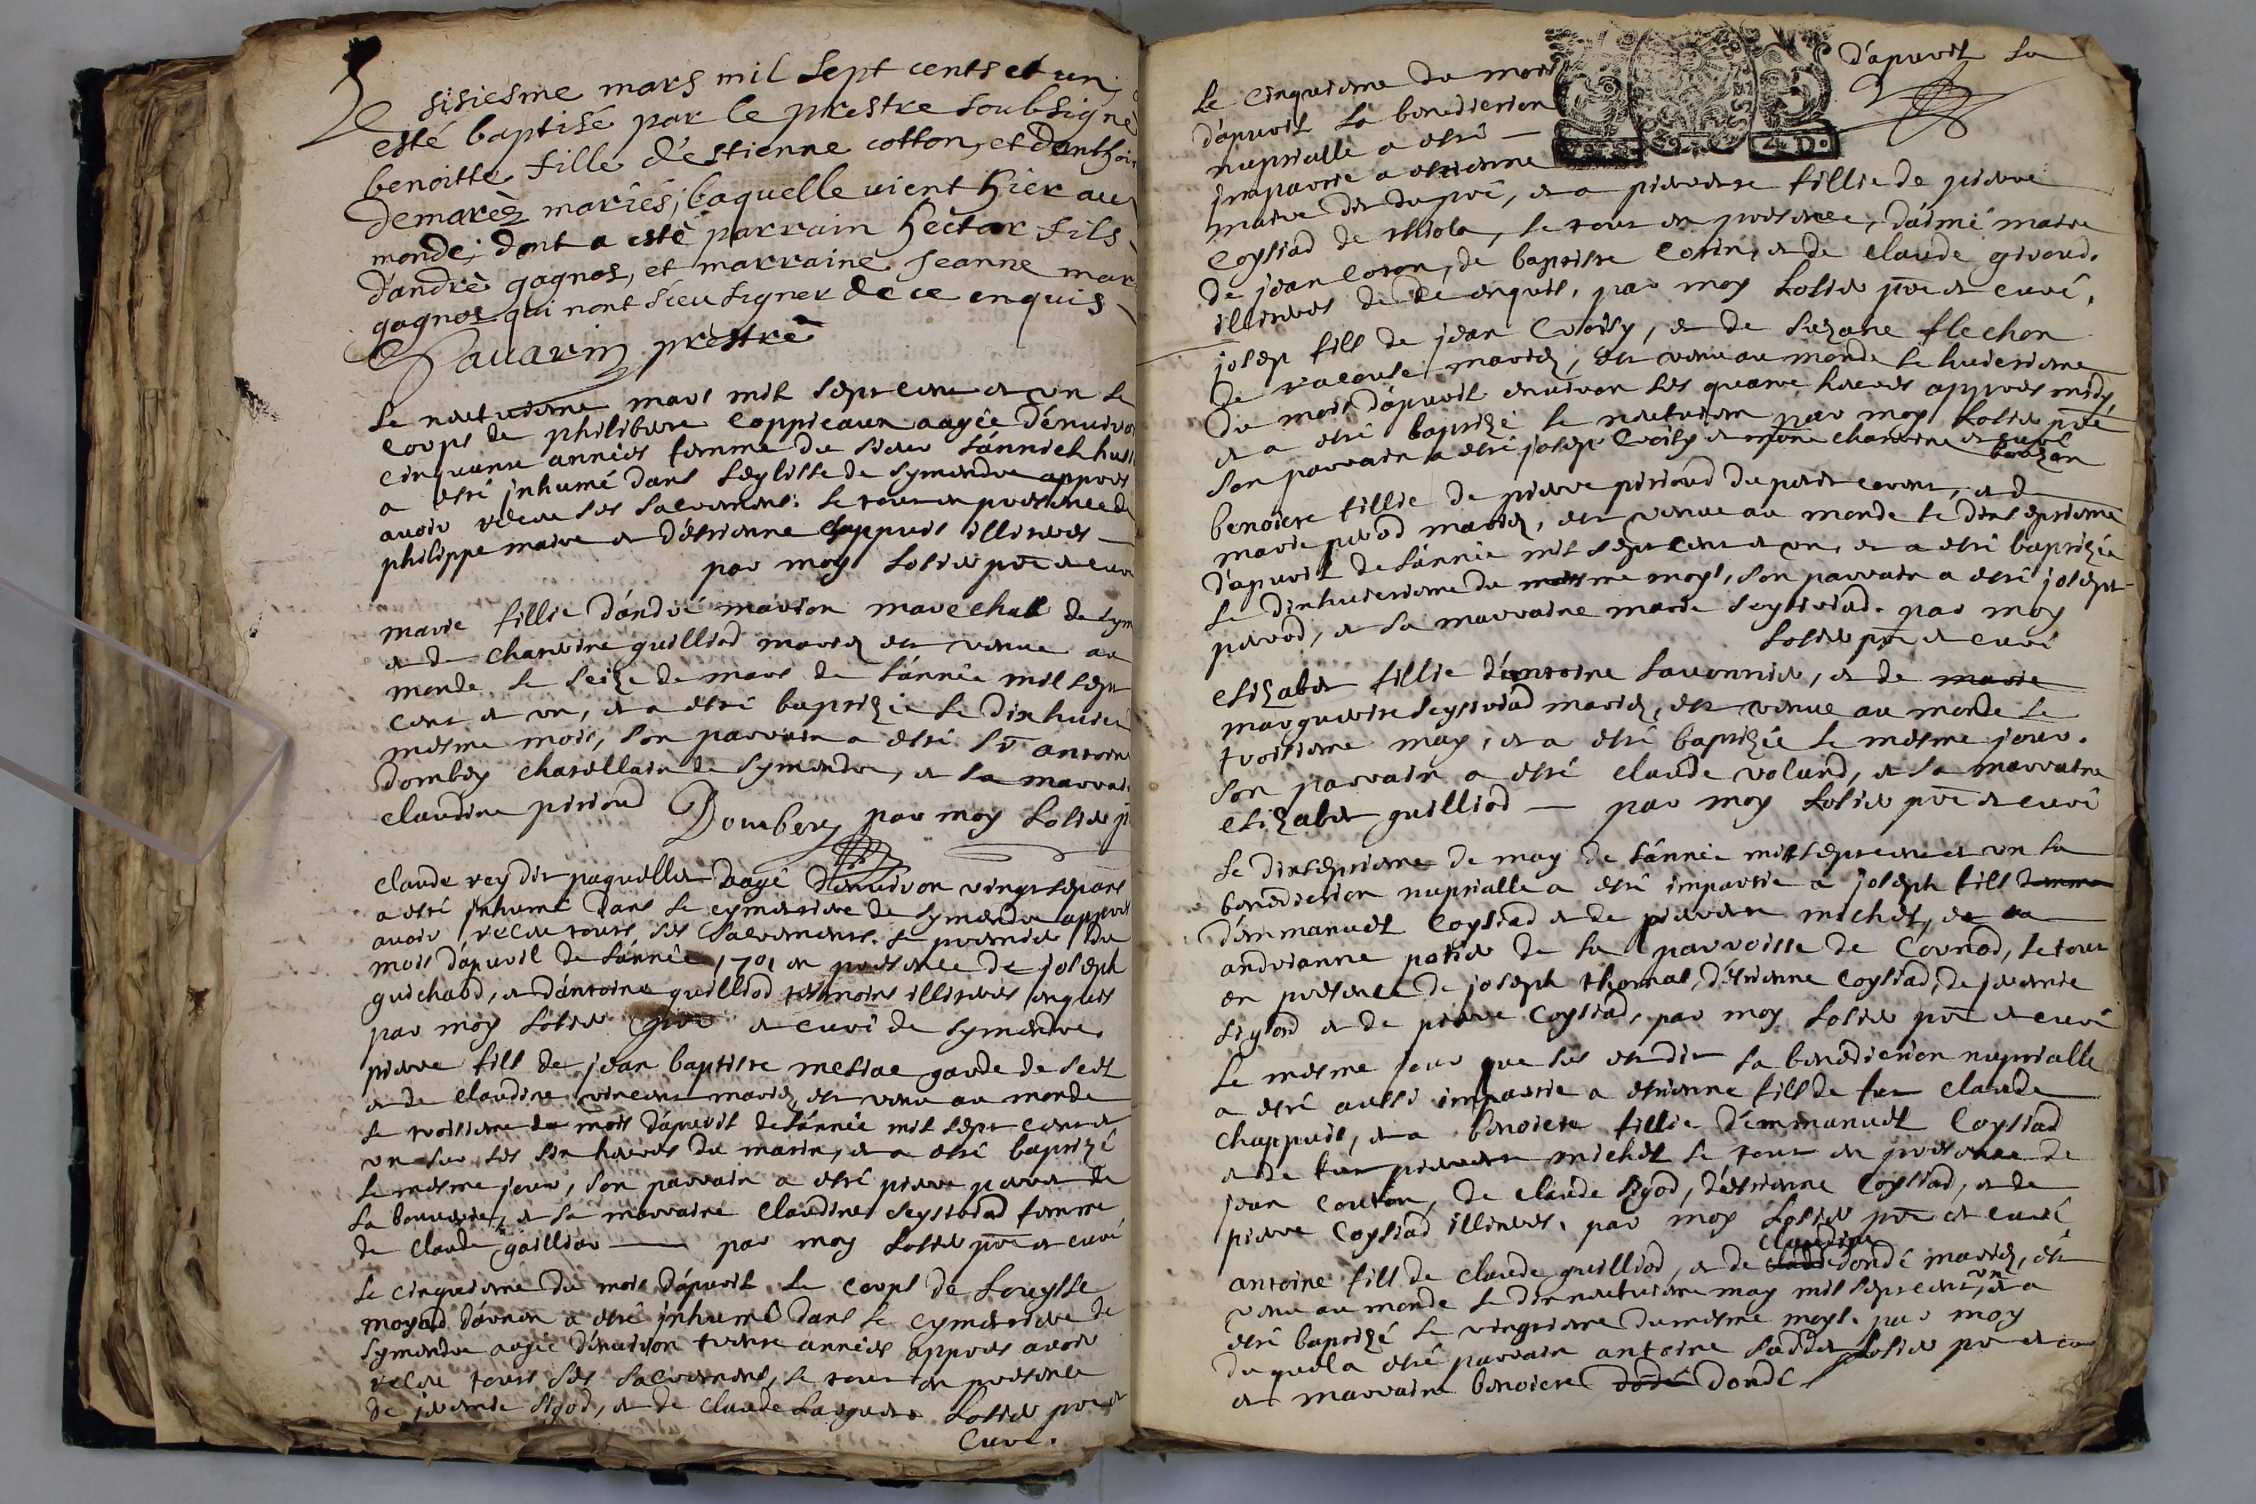 Le sisiesme mars mil sept cents et un,
esté baptisé par le prestre soubsigné
benoitte fille d'estienne cotton, et
demarèz mariés; laquelle vient hier au
monde; dont a esté parrain hector fils
d'andré gagnos, et marraine jeanne mar
gagnos qui nont sceu signer de ce enquis
Savarin prestre
Le neufuieme mars mil sept cent et un le
corps de philiberte coppieaux aagée d'enuiron
cinquante années femme du sieur
a esté inhumé dans l'eglisse de symendre appres
auoir receu ses sacrements. le tout en presence de
philippe maire et d'estienne chappuis illitérés
par moy Losier pre et curé
marie fillie d'andré marion marechal de sym
et de chaterine guilliod mariez est venue au
monde le seize de mars de l'année mil sept
cent et un, et a esté baptizée le dixhuict
mesme mois, son parrain a esté sr antoine
dombey chatellain de symendre, et sa marraine
claudine pirioud Dombey par moy Losier p
claude rey dit paquellet aagé d'enuiron vingt sept ans
a esté inhumé dans le cymetiere de symendre appres
auoir receu touts ses sacrements. le premier du
mois d'apuril de l'année 1701 en presence de joseph
guichard, et d'antoine guilliod tesmoins illiterés enquis
par moy Losier pre et curé de symendre.
pierre fils de jean baptiste mesiae garde de sel
et de claudine vincent mariez est venu au monde
le troisieme du mois d'apuril de l'année mil sept cent et
un sur les six heures du matin, et a esté baptizé
le mesme jour, son parrain a esté pierre perret de
la bouuerie, et sa marraine claudine seystriad femme
de claude guilliod — par moy Losier pre et curé
Le cinquieme du mois d'apuril le corps de Louysse
moyad d'avnon a esté inhumé dans le cymetiere de
symendre aagée d'enuiron trente années appres auoir
receu touts ses sacrements, le tout en presence
de jeremie Sigod, et de claude Losier pre et
curé.
Le cinquieme du mois d'apuril La
d'apuril la benediction
nuptialle a esté —
impartie a estienne
maire dit dupré, et a pierrette fillie de pierre
Coysiad de thiole, le tout en presence, d'aimé maire
de jean coton, de baptiste cotin, et de claude giroud.
illiterés de ce enquis. par moy Losier pre et curé.
josep fils de jean Croisy, et de suzane flechon
de racouse mariez, est venu au monde le huictieme
du mois d'apuril enuiron les quatre heures appres midy
et a esté baptizé le neufuieme par moy Losier pre
son parrain a esté josep Croisy et mere chaterine et curé
bouzon
benoiste fillie de pierre pirioud du petit corent, et de
marie perod mariez, est venue au monde le dix septieme
d'apuril de l'année mil sept cent et un, et a esté baptizée
Le dixhuictieme du mesme moys, son parrain a esté joseph
perrod, et sa marraine marie seystriad. par moy
Losier pre et curé
elizabet fillie d'antoine Sauonnier, et de marie
marguerite seystriad mariez, est venue au monde le
troisieme may, et a esté baptizée le mesme jour.
son parrain a esté claude voland, et sa marraine
elizabet guilliod — par moy Losier pre et curé
Le dixseptieme de may de l'année mil sept cent et un la
benediction nuptialle a esté impartie a joseph fils
d'emmanuel Coysiad et de pierrette michel, et a
andrianne potier de la parroisse de Cornod, le tout
en presence de joseph thomas, d'estienne coysiad, de jeremie
Sigod et de pierre Coysiad, par moy Losier pre et curé
Le mesme jour que sus est dit la benediction nuptialle
a esté aussi impartie a estienne fils de feu claude
Chappuis, et a benoiste fillie d'emmanuel Coysiad
et de feu pierrette michel le tout en presence de
jean couton, de claude Sigod, d'estienne Coysiad, et de
pierre Coysiad illiterés. par moy Losier pre et curé
claudine
antoine fils de claude guilliod, et de dondé mariez, est
venu au monde le dix neufuieme may mil sept cent un, et a
esté baptizé le vingtieme du mesme moys. par moy
duquel a esté parrain antoine Losier pre et cu
et marraine benoiste dondé